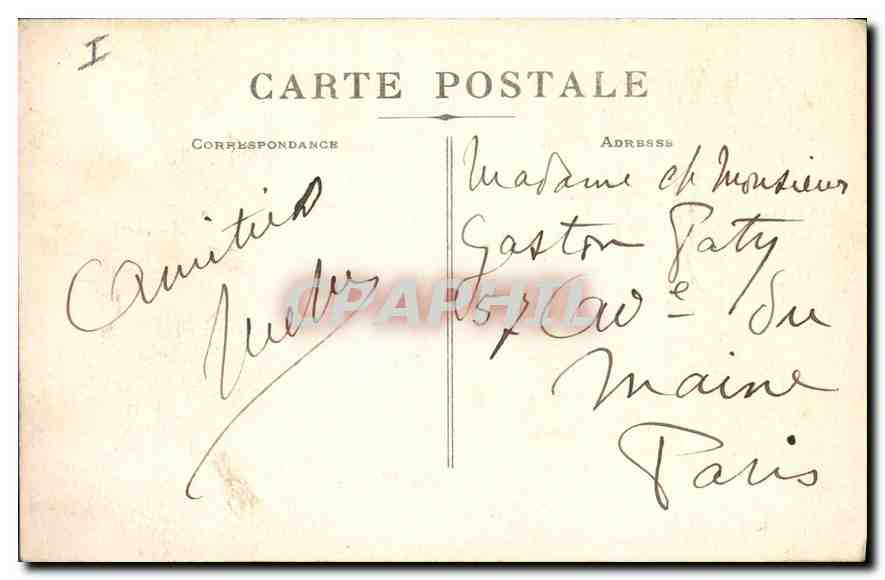 I
CARTE POSTALE
CORRESPONDANCE
ADRESSE
Amitiés
Madame et Monsieur
Gaston Paty
57 Ave du
Maine
Paris
CPAPHIL